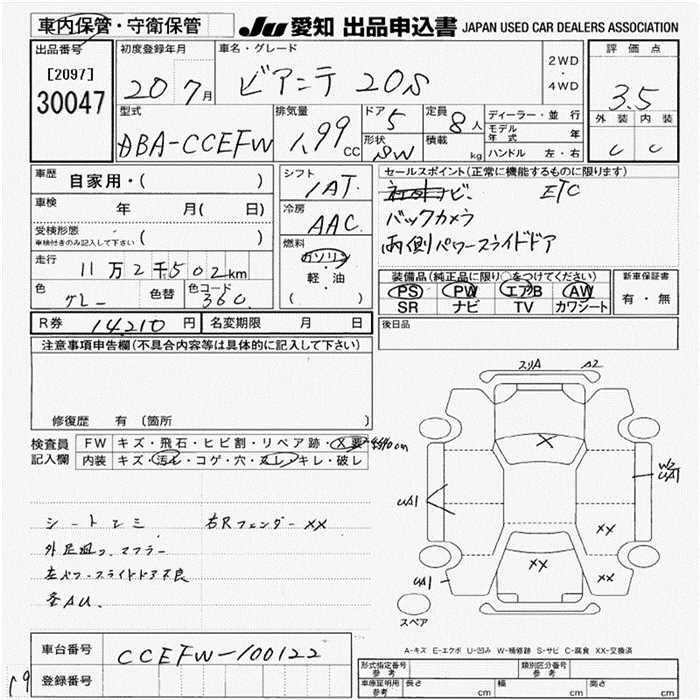 車内保管・守衛保管
JU 愛知 出品申込書 JAPAN USED CAR DEALERS ASSOCIATION
出品番号 初度登録年月 車名・グレード 評価点
[2097]
30047
20 7月 ビアンテ 20S 2WD・4WD 3.5
型式 排気量 ドア 5 定員 8人 ディーラー・並行 外装 内装
ABA-CCEFW 1.99 CC 形状 SW 積載 kg モデル年式 年 C C
ハンドル 左・右
車歴 自家用・( )
シフト IAT
セールスポイント(正常に機能するものに限ります)
ナビ ETC
車検 年 月( 日)
冷房 AAC
バックカメラ
受検形態 車検付きのみ記入して下さい ( )
両側パワースライドドア
燃料 ガソリン 軽・油 ( )
走行 11万2千502km
装備品(純正品に限り○をつけてください) 新車保証書
色 グレー 色替 色コード 360
PS PW エアB AW 有・無
SR ナビ TV カワシート
R券 14,210円 名変期限 月 日
後日品
注意事項申告欄(不具合内容等は具体的に記入して下さい)
修復歴 有 (箇所 )
スリA A2
検査員記入欄 FW キズ・飛石・ヒビ割・リペア跡・X要
内装 キズ・汚レ・コゲ・穴・スレ・キレ・破レ
W2
UA1
UA1
XX
XX
XX
UA1
シート 右Rフェンダー XX
マフラー
左パワースライドドア不良
AU.
スペア
A-キズ E-エクボ U-凹み W-補修跡 S-サビ C-腐食 XX-交換済
車台番号 CCEFW-100122
登録番号
型式指定番号 参考 類別区分番号 参考
車庫証明用 参考 長さ cm 幅 cm 高さ cm